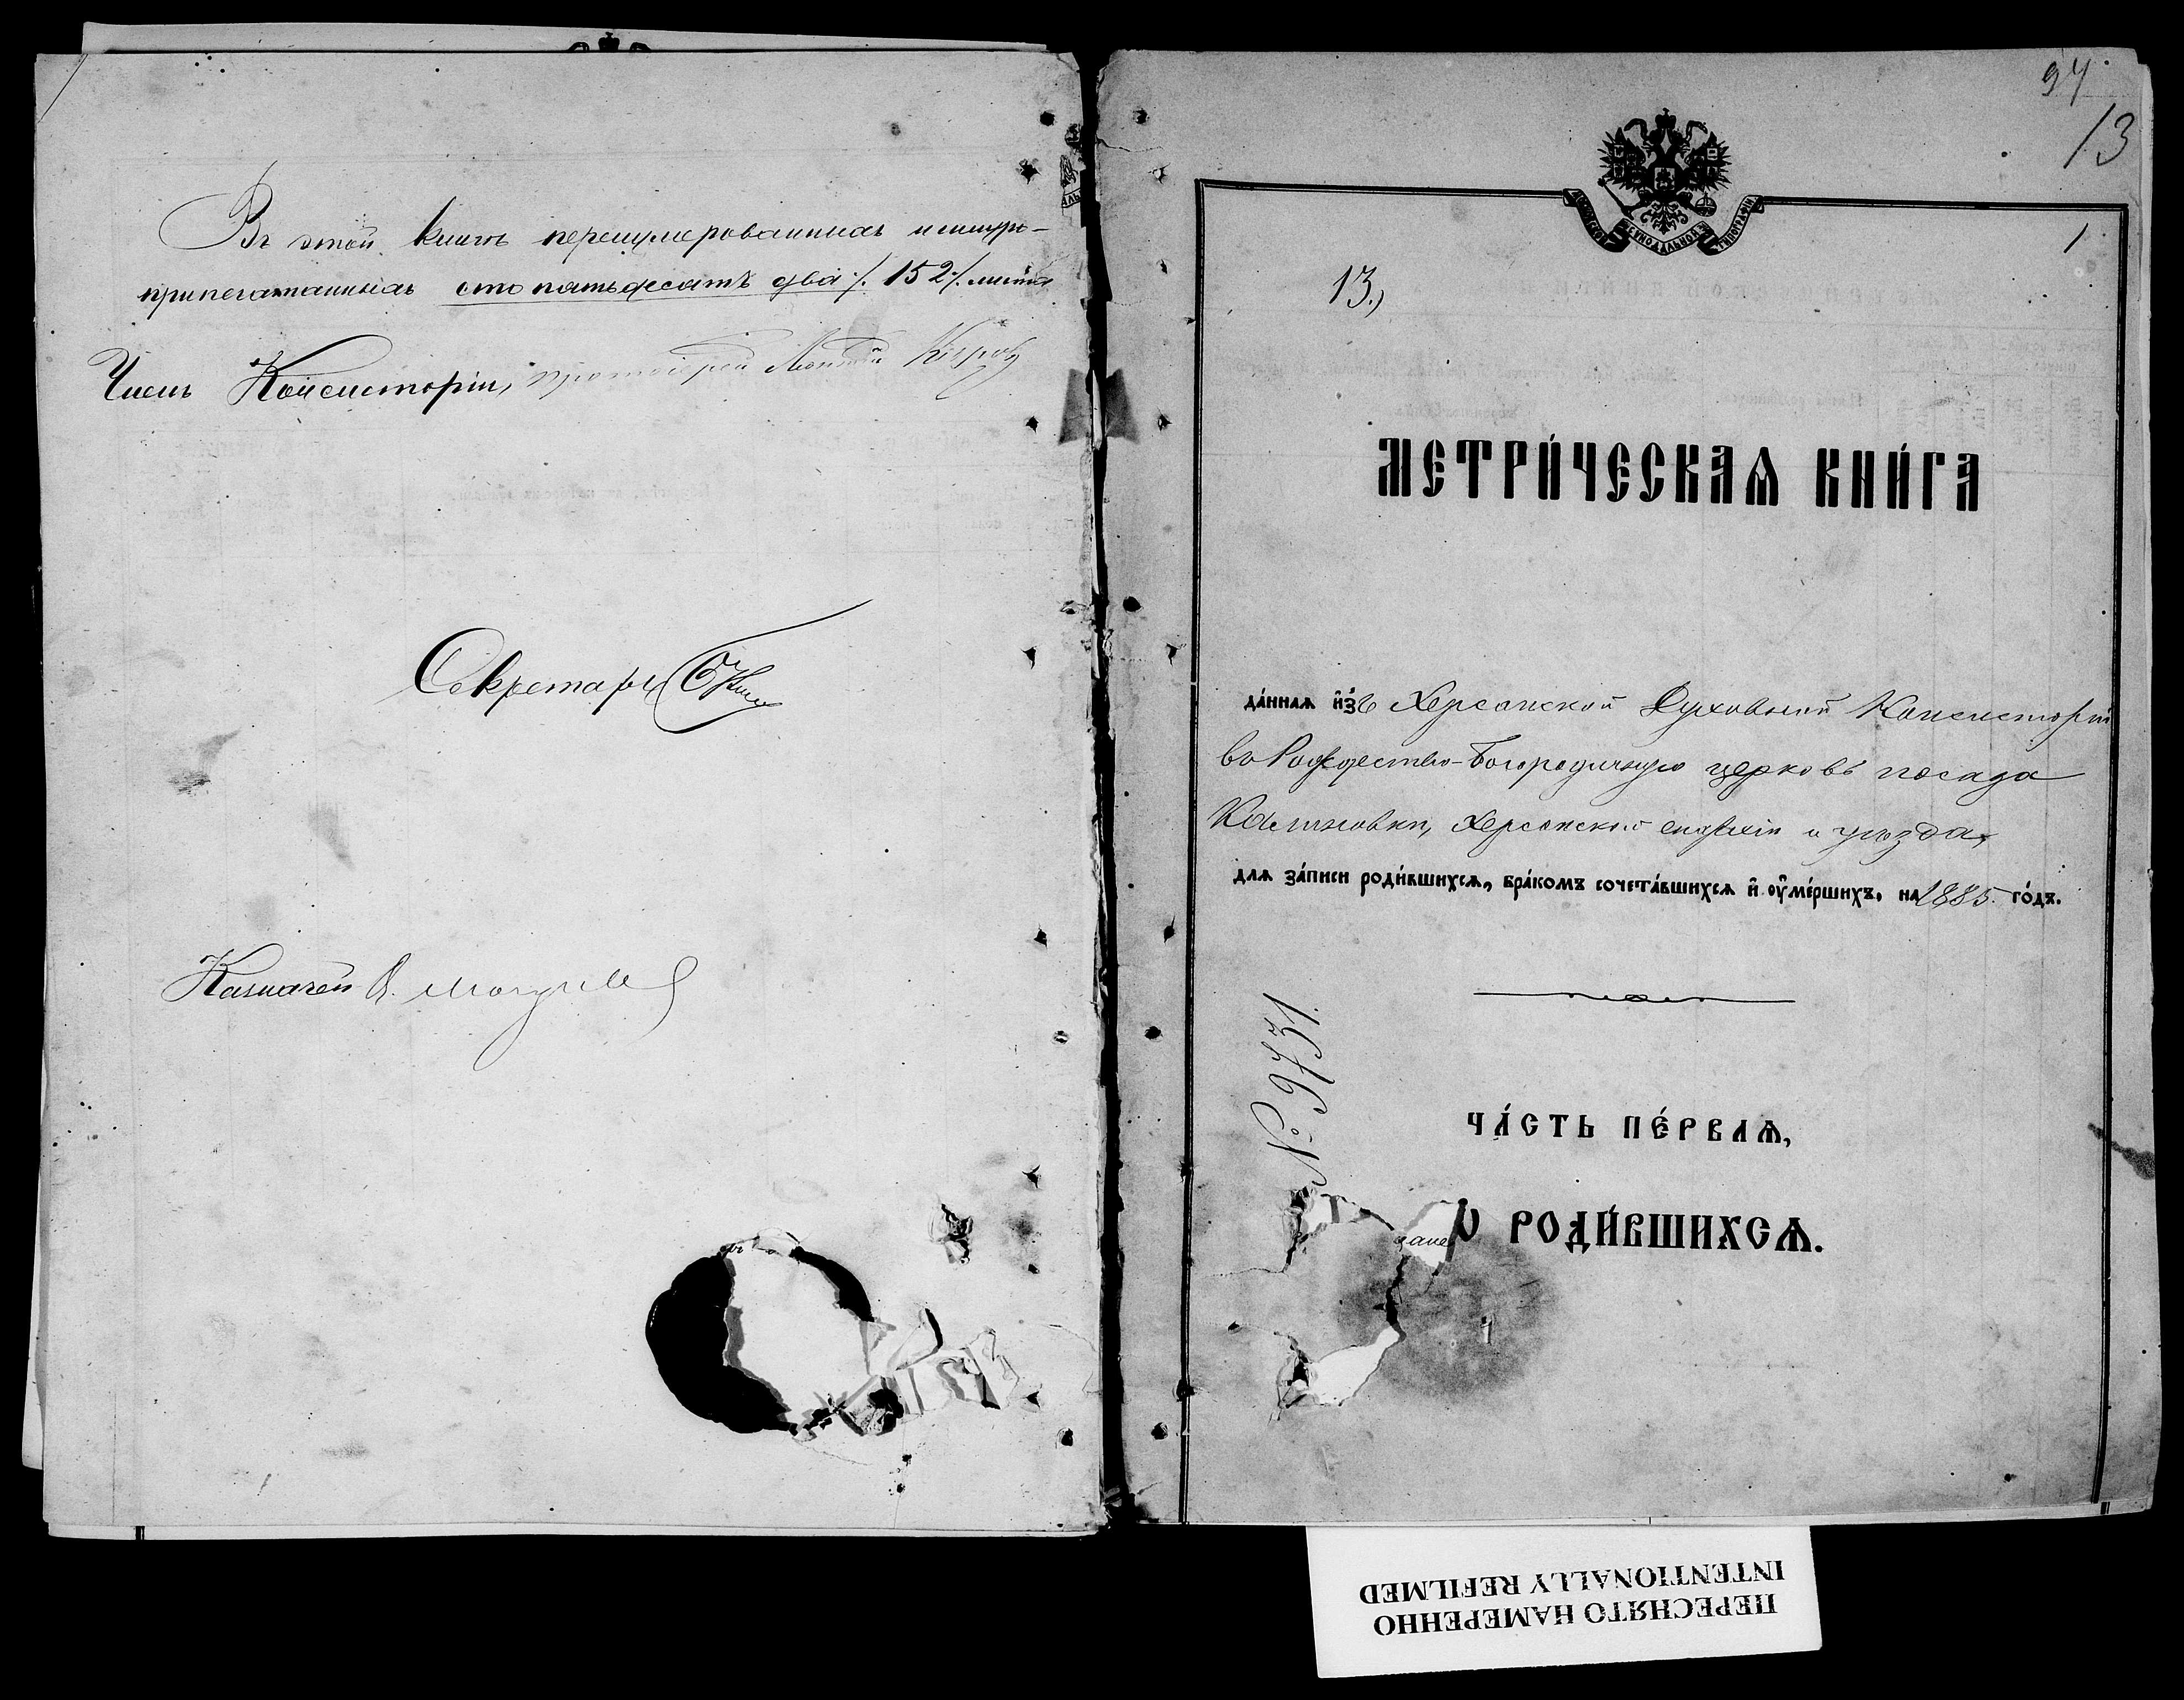 Въ этой книгѣ перенумерованныхъ и шнуро-
припечатанныхъ сто пятьдесятъ два ./. 152 ./. листа
Членъ Консисторіи, протоіерей
Секретарь
Казначей
94
13
1
13.)
МЕТРИ́ЧЕСКАѦ КНИ́ГА
да́ннаѧ и҆зъ Херсонской Духовной Консисторіи
въ Рождество-Богородичную церковь посада
Калиновки, Херсонской епархіи и уѣзда,
длѧ за́писи роди́вшихсѧ, бра́комъ сочета́вшихсѧ и҆ оу҆ме́ршихъ, на 1885 го́дъ.
№ 9731.
ЧА́СТЬ ПЕ́РВАѦ,
Ѡ РОДИ́ВШИХСѦ.
ПЕРЕСНЯТО НАМЕРЕННО
INTENTIONALLY REFILMED